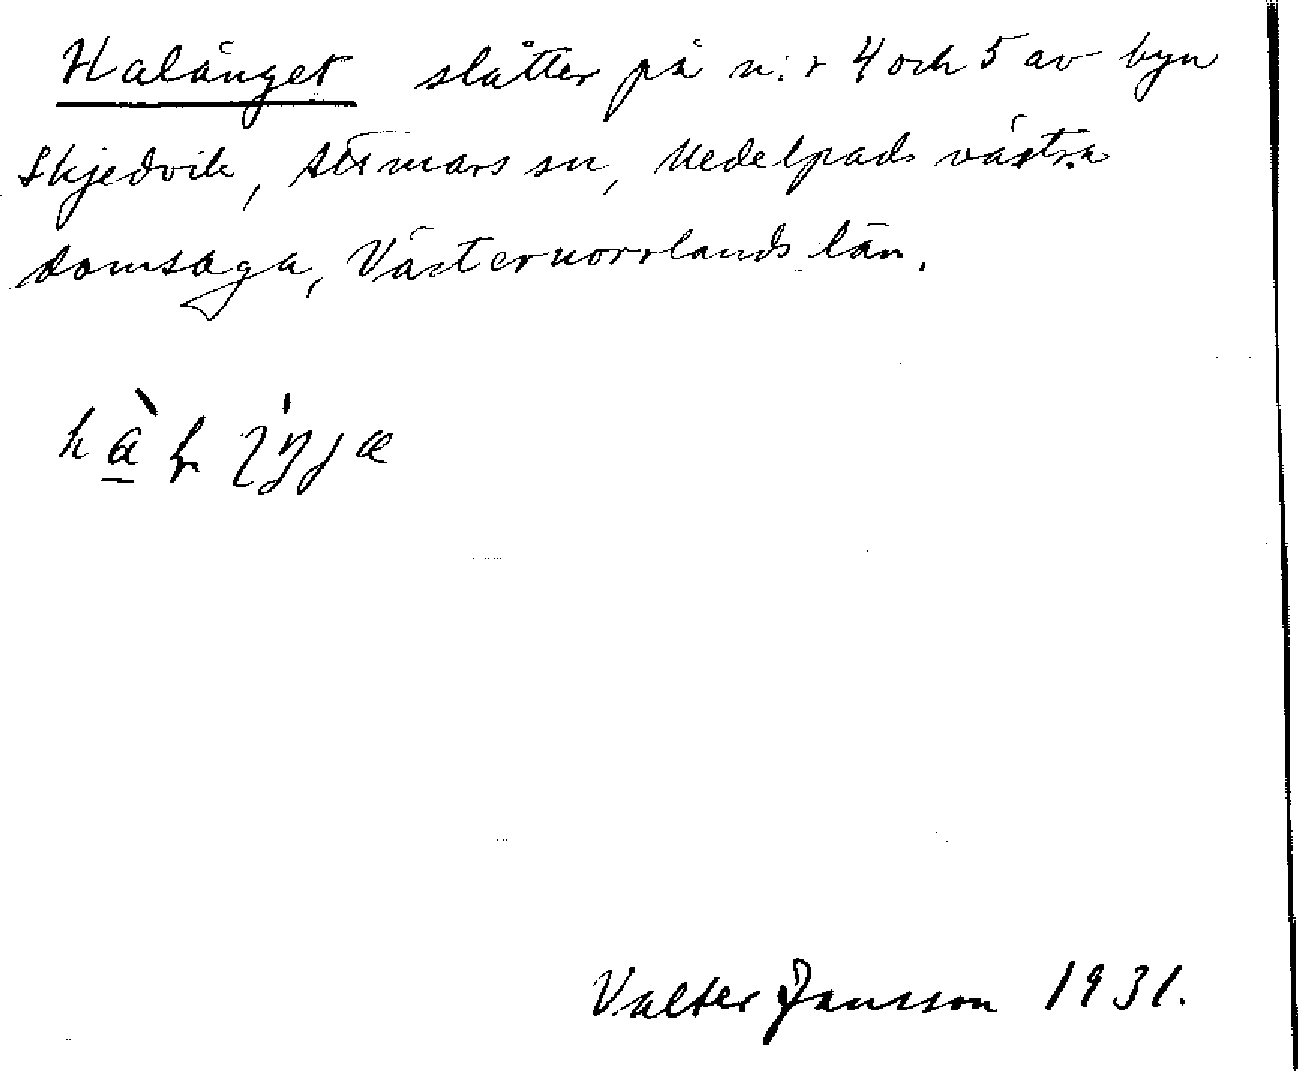 Halänget slåtter på n:r 4 och 5 av byn
Skjedvik, Attmars sn, Medelpads västra
domsaga, Västernorrlands län.
Valter Jansson 1931.